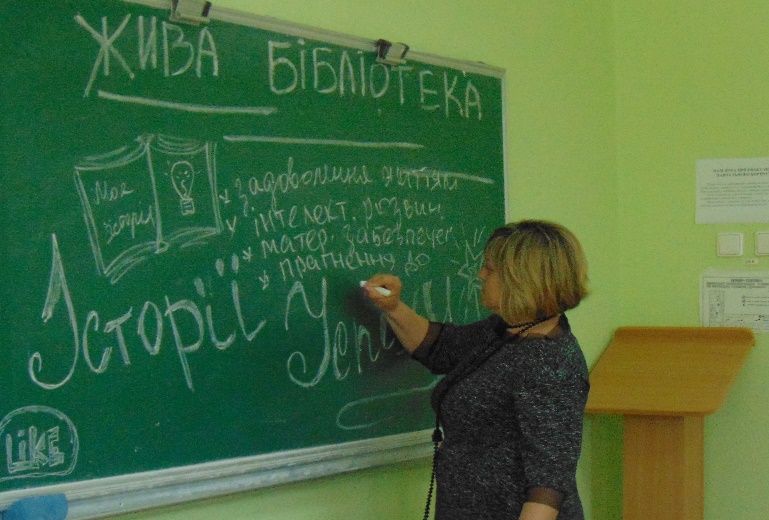 ЖИВА БІБЛІОТЕКА
Моя
історія
задоволення життям
інтелект. розвит.
матер. забезпечен
прагнення до
Історії
LIKE